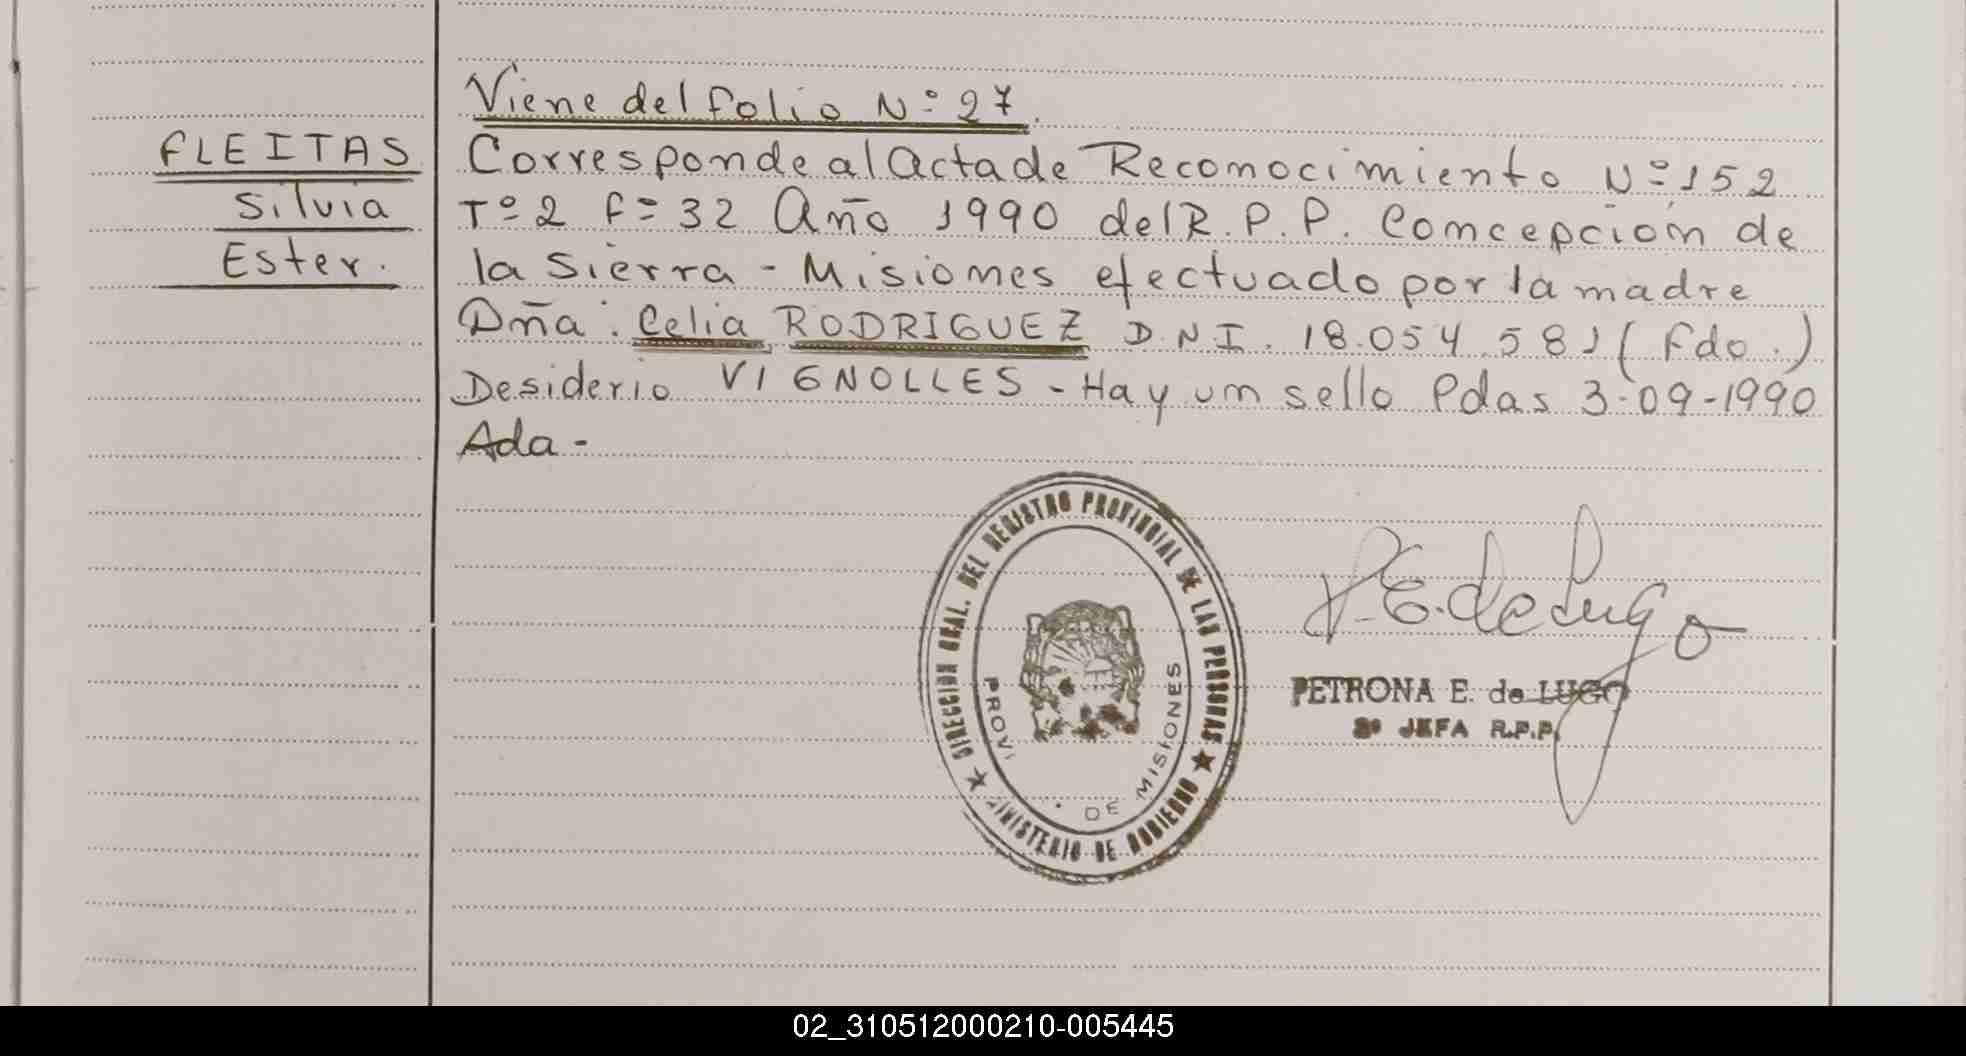 Viene del folio N° 27.
FLEITAS
Silvia
Ester.
Corresponde al Acta de Reconocimiento N° 152
T° 2 F° 32 Año 1990 del R.P.P. Concepción de
la Sierra - Misiones efectuado por la madre
Dña. Celia RODRIGUEZ D.N.I. 18.054.581 (Fdo.)
Desiderio VIGNOLLES - Hay un sello Pdas 3-09-1990
Ada -
DIRECCION GRAL. DEL REGISTRO PROVINCIAL DE LAS PERSONAS
MINISTERIO DE GOBIERNO
PROVI
DE MISIONES
P. E. de Lugo
PETRONA E. de LUGO
2º JEFA R.P.P.
02_310512000210-005445